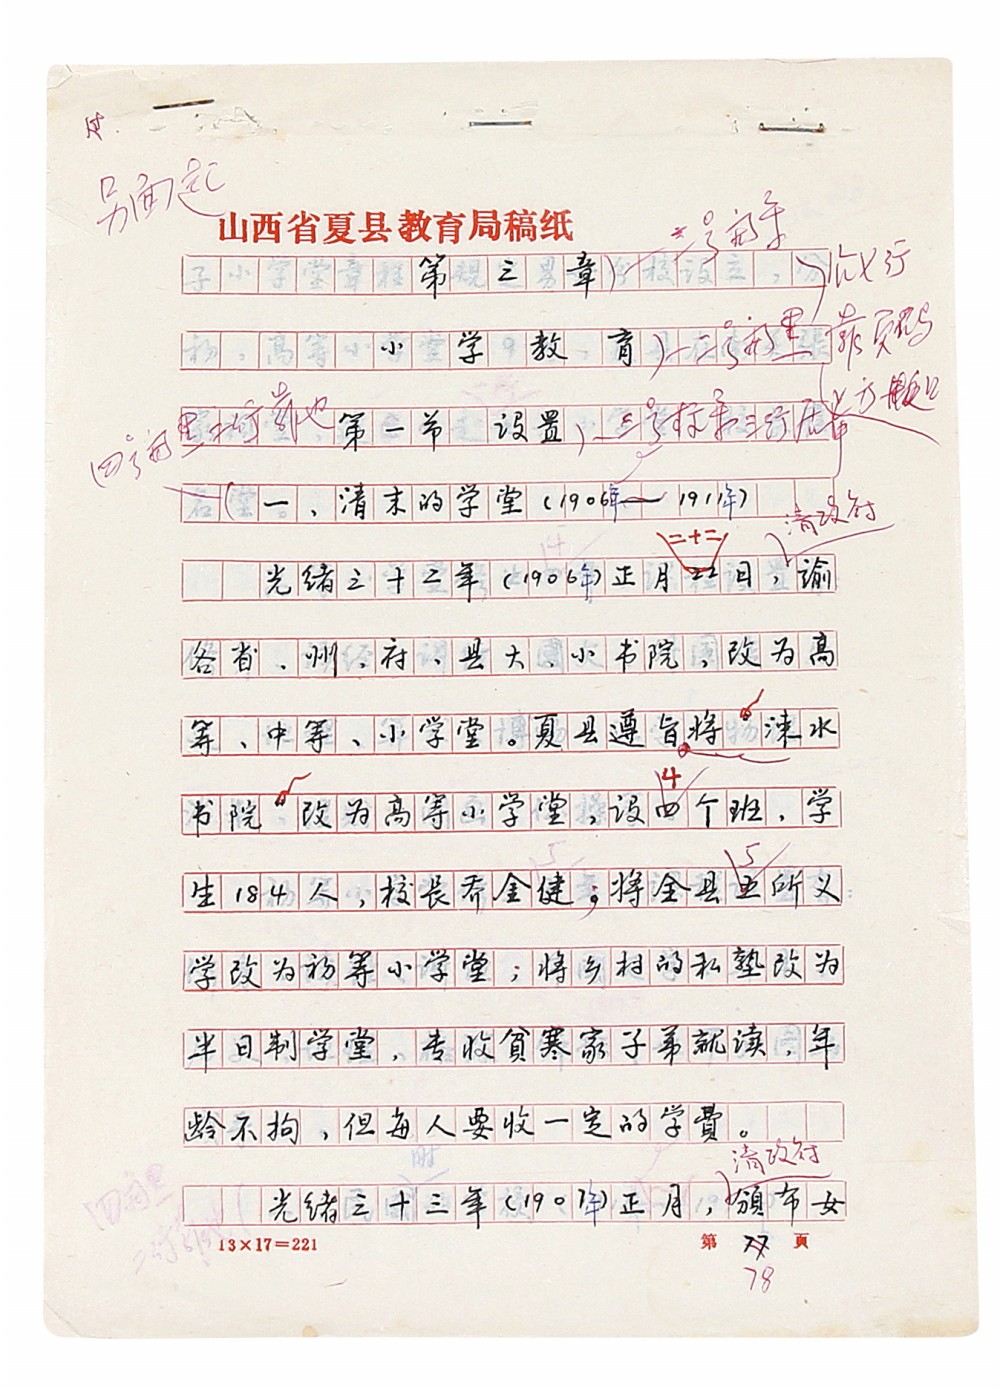 另面起
山西省夏县教育局稿纸
第三章
小学教育
第一节 设置
一、清末的学堂(1906年—1911年)
二十二
清政府
光绪三十二年(1906年)正月22日,谕
各省、州、府、县大、小书院,改为高
等、中等、小学堂。夏县遵旨将涑水
4
书院 改为高等小学堂,设四个班,学
5
生184人,校长乔金健;将全县五所义
学改为初等小学堂;将乡村的私塾改为
半日制学堂,专收贫寒家子弟就读,年
龄不拘,但每人要收一定的学费。
清政府
光绪三十三年(1907年)正月,颁布女
13×17=221
第 77 页
78